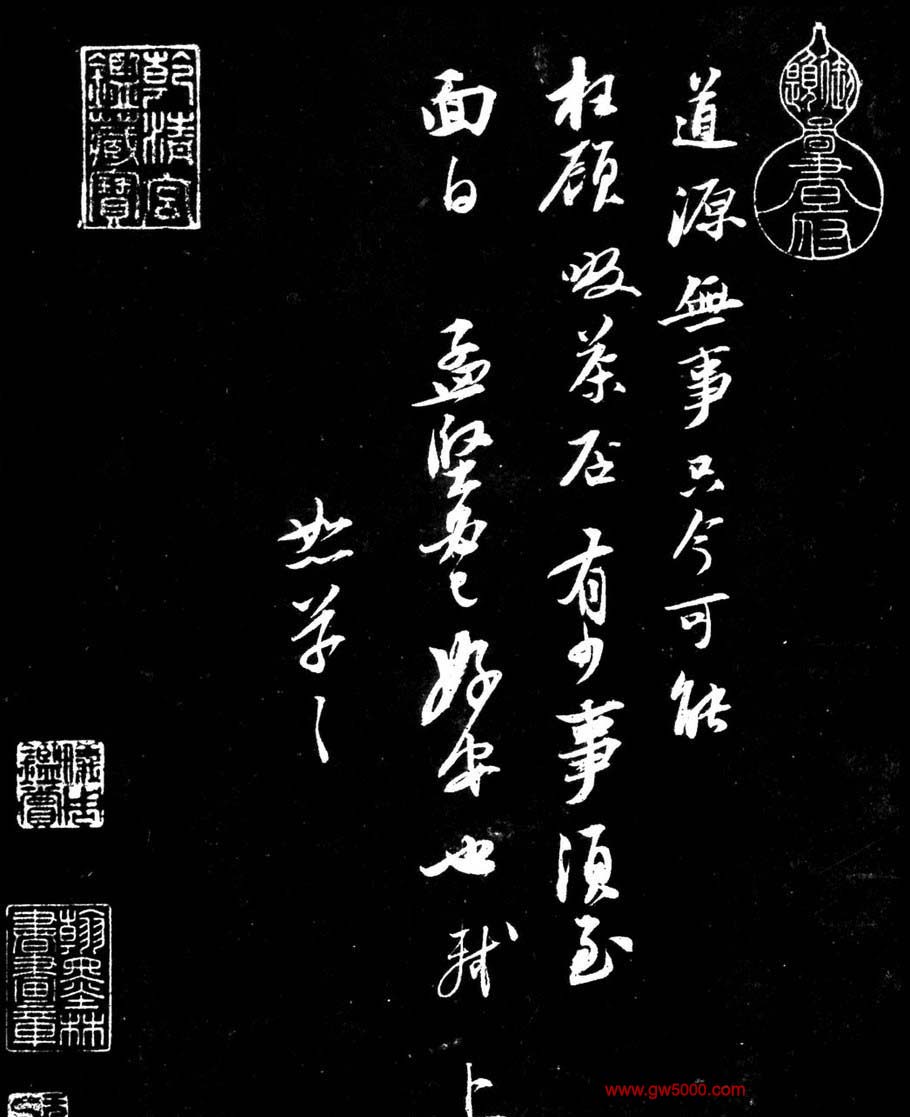 道源無事只今可能
枉顧啜茶否有少事須至
面白 孟堅必已好安也 軾上
恕草〻
乾清宮
鑑藏寶
儀周
鑑賞
翰墨林
書畫章
www.gw5000.com